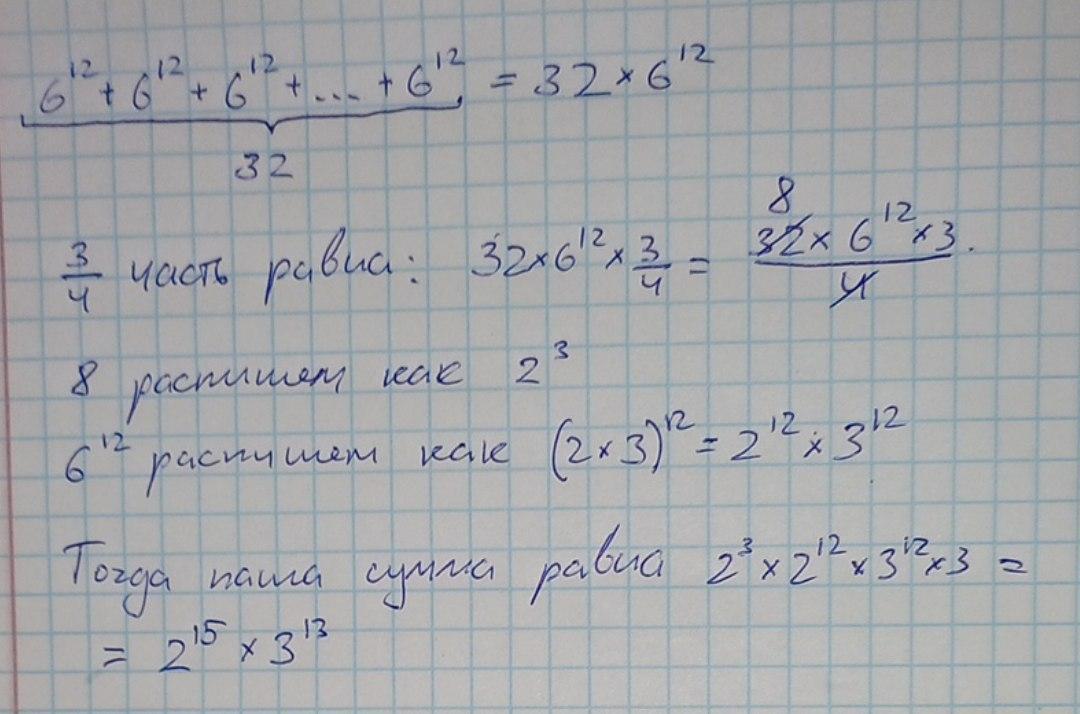 6¹² + 6¹² + 6¹² + ... + 6¹² = 32 × 6¹²
32
3/4 часть равна: 32 × 6¹² × 3/4 = 8 32 × 6¹² × 3 / 4.
8 распишем как 2³
6¹² распишем как (2 × 3)¹² = 2¹² × 3¹²
Тогда наша сумма равна 2³ × 2¹² × 3¹² × 3 =
= 2¹⁵ × 3¹³